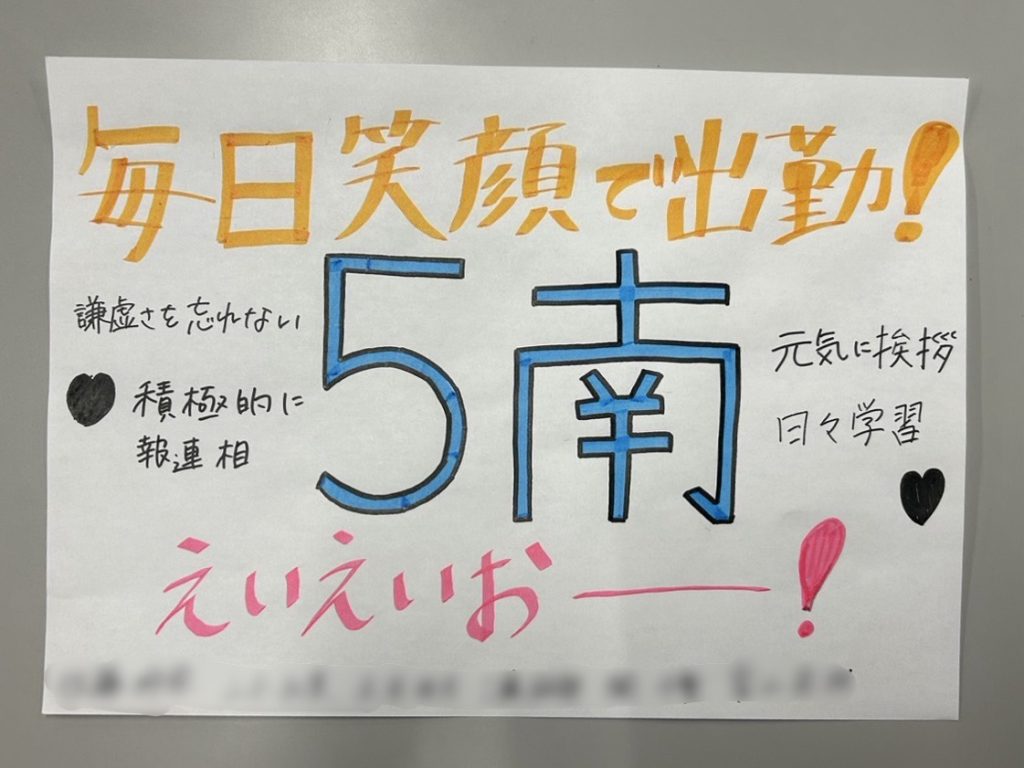 毎日笑顔で出勤!
5南
謙虚さを忘れない
積極的に
報連相
元気に挨拶
日々学習
えいえいおー!